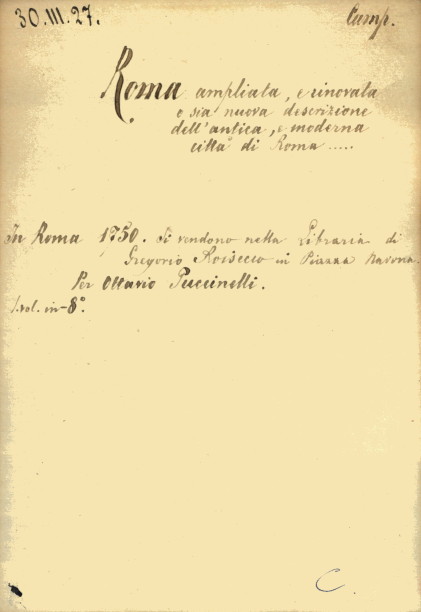 30.III.27.
Camp.
Roma ampliata, e rinovata
o sia nuova descrizione
dell'antica, e moderna
città di Roma .....
In Roma 1750. Si vendono nella Libraria di
Gregorio Roisecco in Piazza Navona.
Per Ottavio Puccinelli.
1.vol. in-8°.
C.